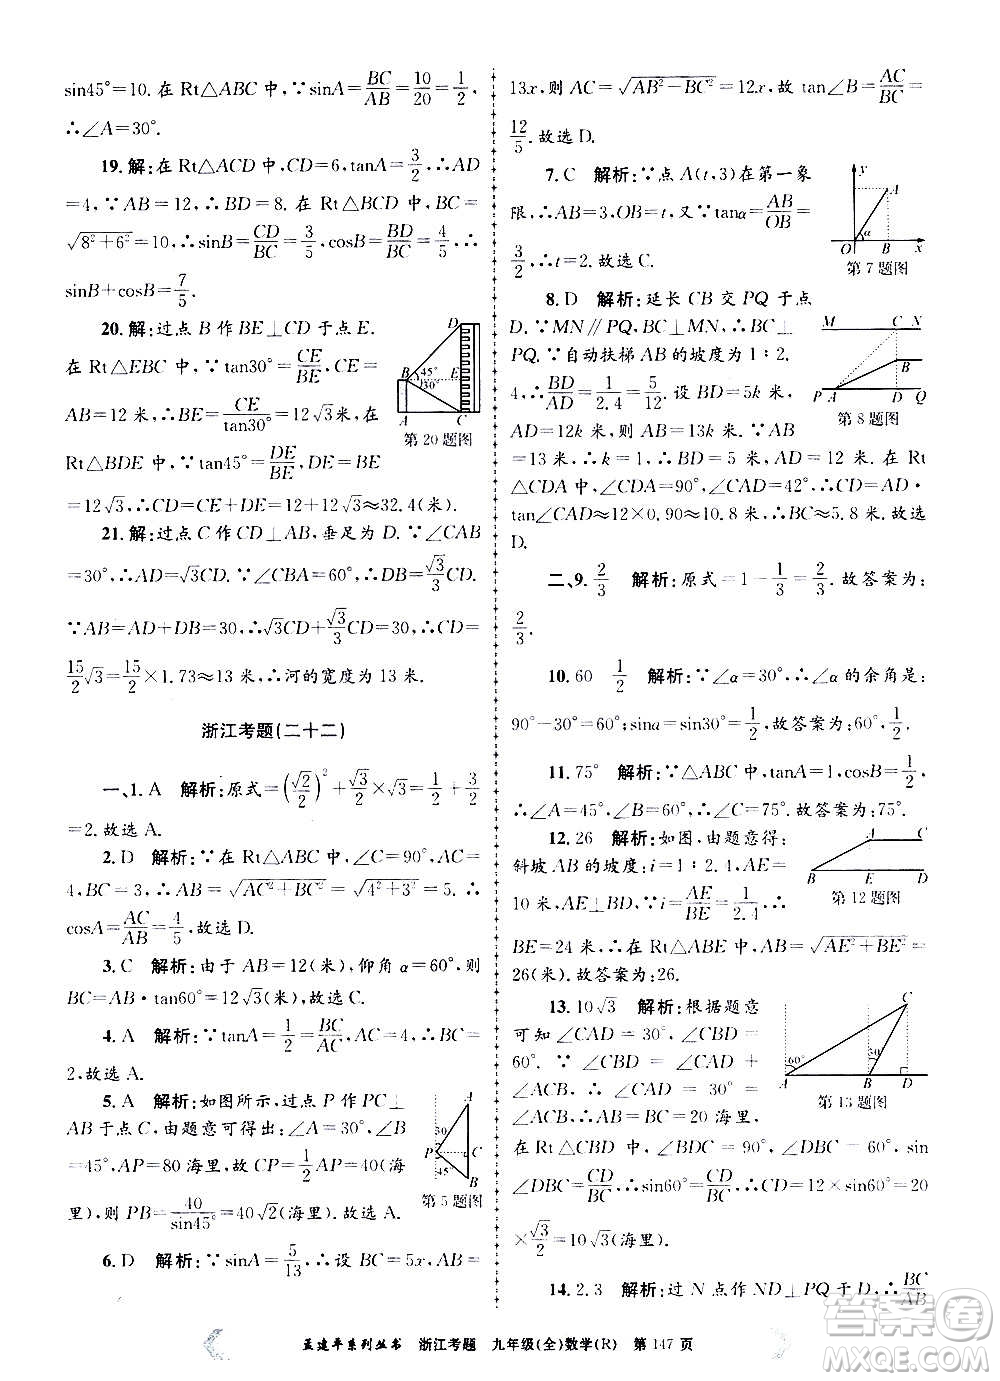 sin45°=10. 在 Rt△ABC 中,∵sinA=BC/AB=10/20=1/2,
∴∠A=30°.
19. 解:在 Rt△ACD 中,CD=6,tanA=3/2,∴AD
=4,∵AB=12,∴BD=8. 在 Rt△BCD 中,BC=
√(8²+6²)=10,∴sinB=CD/BC=3/5,cosB=BD/BC=4/5,∴
sinB+cosB=7/5.
20. 解:过点 B 作 BE⊥CD 于点 E.
在 Rt△EBC 中,∵tan30°=CE/BE,
AB=12 米,∴BE=CE/tan30°=12√3 米,在
Rt△BDE 中,∵tan45°=DE/BE,∴DE=BE
=12√3,∴CD=CE+DE=12+12√3≈32.4(米).
D
B 45° E
30°
A C
第 20 题图
21. 解:过点 C 作 CD⊥AB,垂足为 D. ∵∠CAB
=30°,∴AD=√3CD. ∵∠CBA=60°,∴DB=√3/3CD.
∵AB=AD+DB=30,∴√3CD+√3/3CD=30,∴CD=
15/2√3=15/2×1.73≈13 米. ∴河的宽度为 13 米.
浙江考题(二十二)
一、1. A 解析:原式=(√2/2)²+√3/2×√3=1/2+3/2
=2. 故选 A.
2. D 解析:∵在 Rt△ABC 中,∠C=90°,AC=
4,BC=3,∴AB=√(AC²+BC²)=√(4²+3²)=5. ∴
cosA=AC/AB=4/5,故选 D.
3. C 解析:由于 AB=12(米),仰角 α=60°,则
BC=AB·tan60°=12√3(米),故选 C.
4. A 解析:∵tanA=1/2=BC/AC,AC=4,∴BC=
2,故选 A.
5. A 解析:如图所示,过点 P 作 PC⊥
AB 于点 C,由题意可得出:∠A=30°,∠B
=45°,AP=80 海里,故 CP=1/2AP=40(海
里),则 PB=40/sin45°=40√2(海里). 故选 A.
A
30
P C
45
B
第 5 题图
6. D 解析:∵sinA=5/13,∴设 BC=5x,AB=
13x,则 AC=√(AB²-BC²)=12x,故 tan∠B=AC/BC=
12/5. 故选 D.
7. C 解析:∵点 A(t,3)在第一象
限,∴AB=3,OB=t,又∵tanα=AB/OB=
3/2,∴t=2. 故选 C.
y
A
α
O B x
第 7 题图
8. D 解析:延长 CB 交 PQ 于点
D. ∵MN∥PQ,BC⊥MN,∴BC⊥
PQ. ∵自动扶梯 AB 的坡度为 1∶2.
4,∴BD/AD=1/2.4=5/12. 设 BD=5k 米,
AD=12k 米,则 AB=13k 米. ∵AB
=13 米,∴k=1,∴BD=5 米,AD=12 米. 在 Rt
△CDA 中,∠CDA=90°,∠CAD=42°,∴CD=AD·
tan∠CAD≈12×0.90≈10.8 米,∴BC≈5.8 米. 故选
D.
M C N
B
P A D Q
第 8 题图
二、9. 2/3 解析:原式=1-1/3=2/3. 故答案为:
2/3.
10. 60 1/2 解析:∵∠α=30°,∴∠α 的余角是
90°-30°=60°;sinα=sin30°=1/2,故答案为:60°,1/2.
11. 75° 解析:∵△ABC 中,tanA=1,cosB=1/2,
∴∠A=45°,∠B=60°,∴∠C=75°. 故答案为:75°.
12. 26 解析:如图,由题意得:
斜坡 AB 的坡度:i=1∶2.4,AE=
10 米,AE⊥BD,∵i=AE/BE=1/2.4,∴
BE=24 米,∴在 Rt△ABE 中,AB=√(AE²+BE²)=
26(米). 故答案为:26.
A
B E D
第 12 题图
13. 10√3 解析:根据题意
可知∠CAD=30°,∠CBD=
60°. ∵∠CBD=∠CAD+
∠ACB,∴∠CAD=30°=
∠ACB,∴AB=BC=20 海里,
在 Rt△CBD 中,∠BDC=90°,∠DBC=60°,sin
∠DBC=CD/BC,∴sin60°=CD/BC,∴CD=12×sin60°=20
×√3/2=10√3(海里).
C
60° 30
A B D
第 13 题图
14. 2.3 解析:过 N 点作 ND⊥PQ 于 D,∴BC/AB
孟建平系列丛书 浙江考题 九年级(全)数学(R) 第 147 页